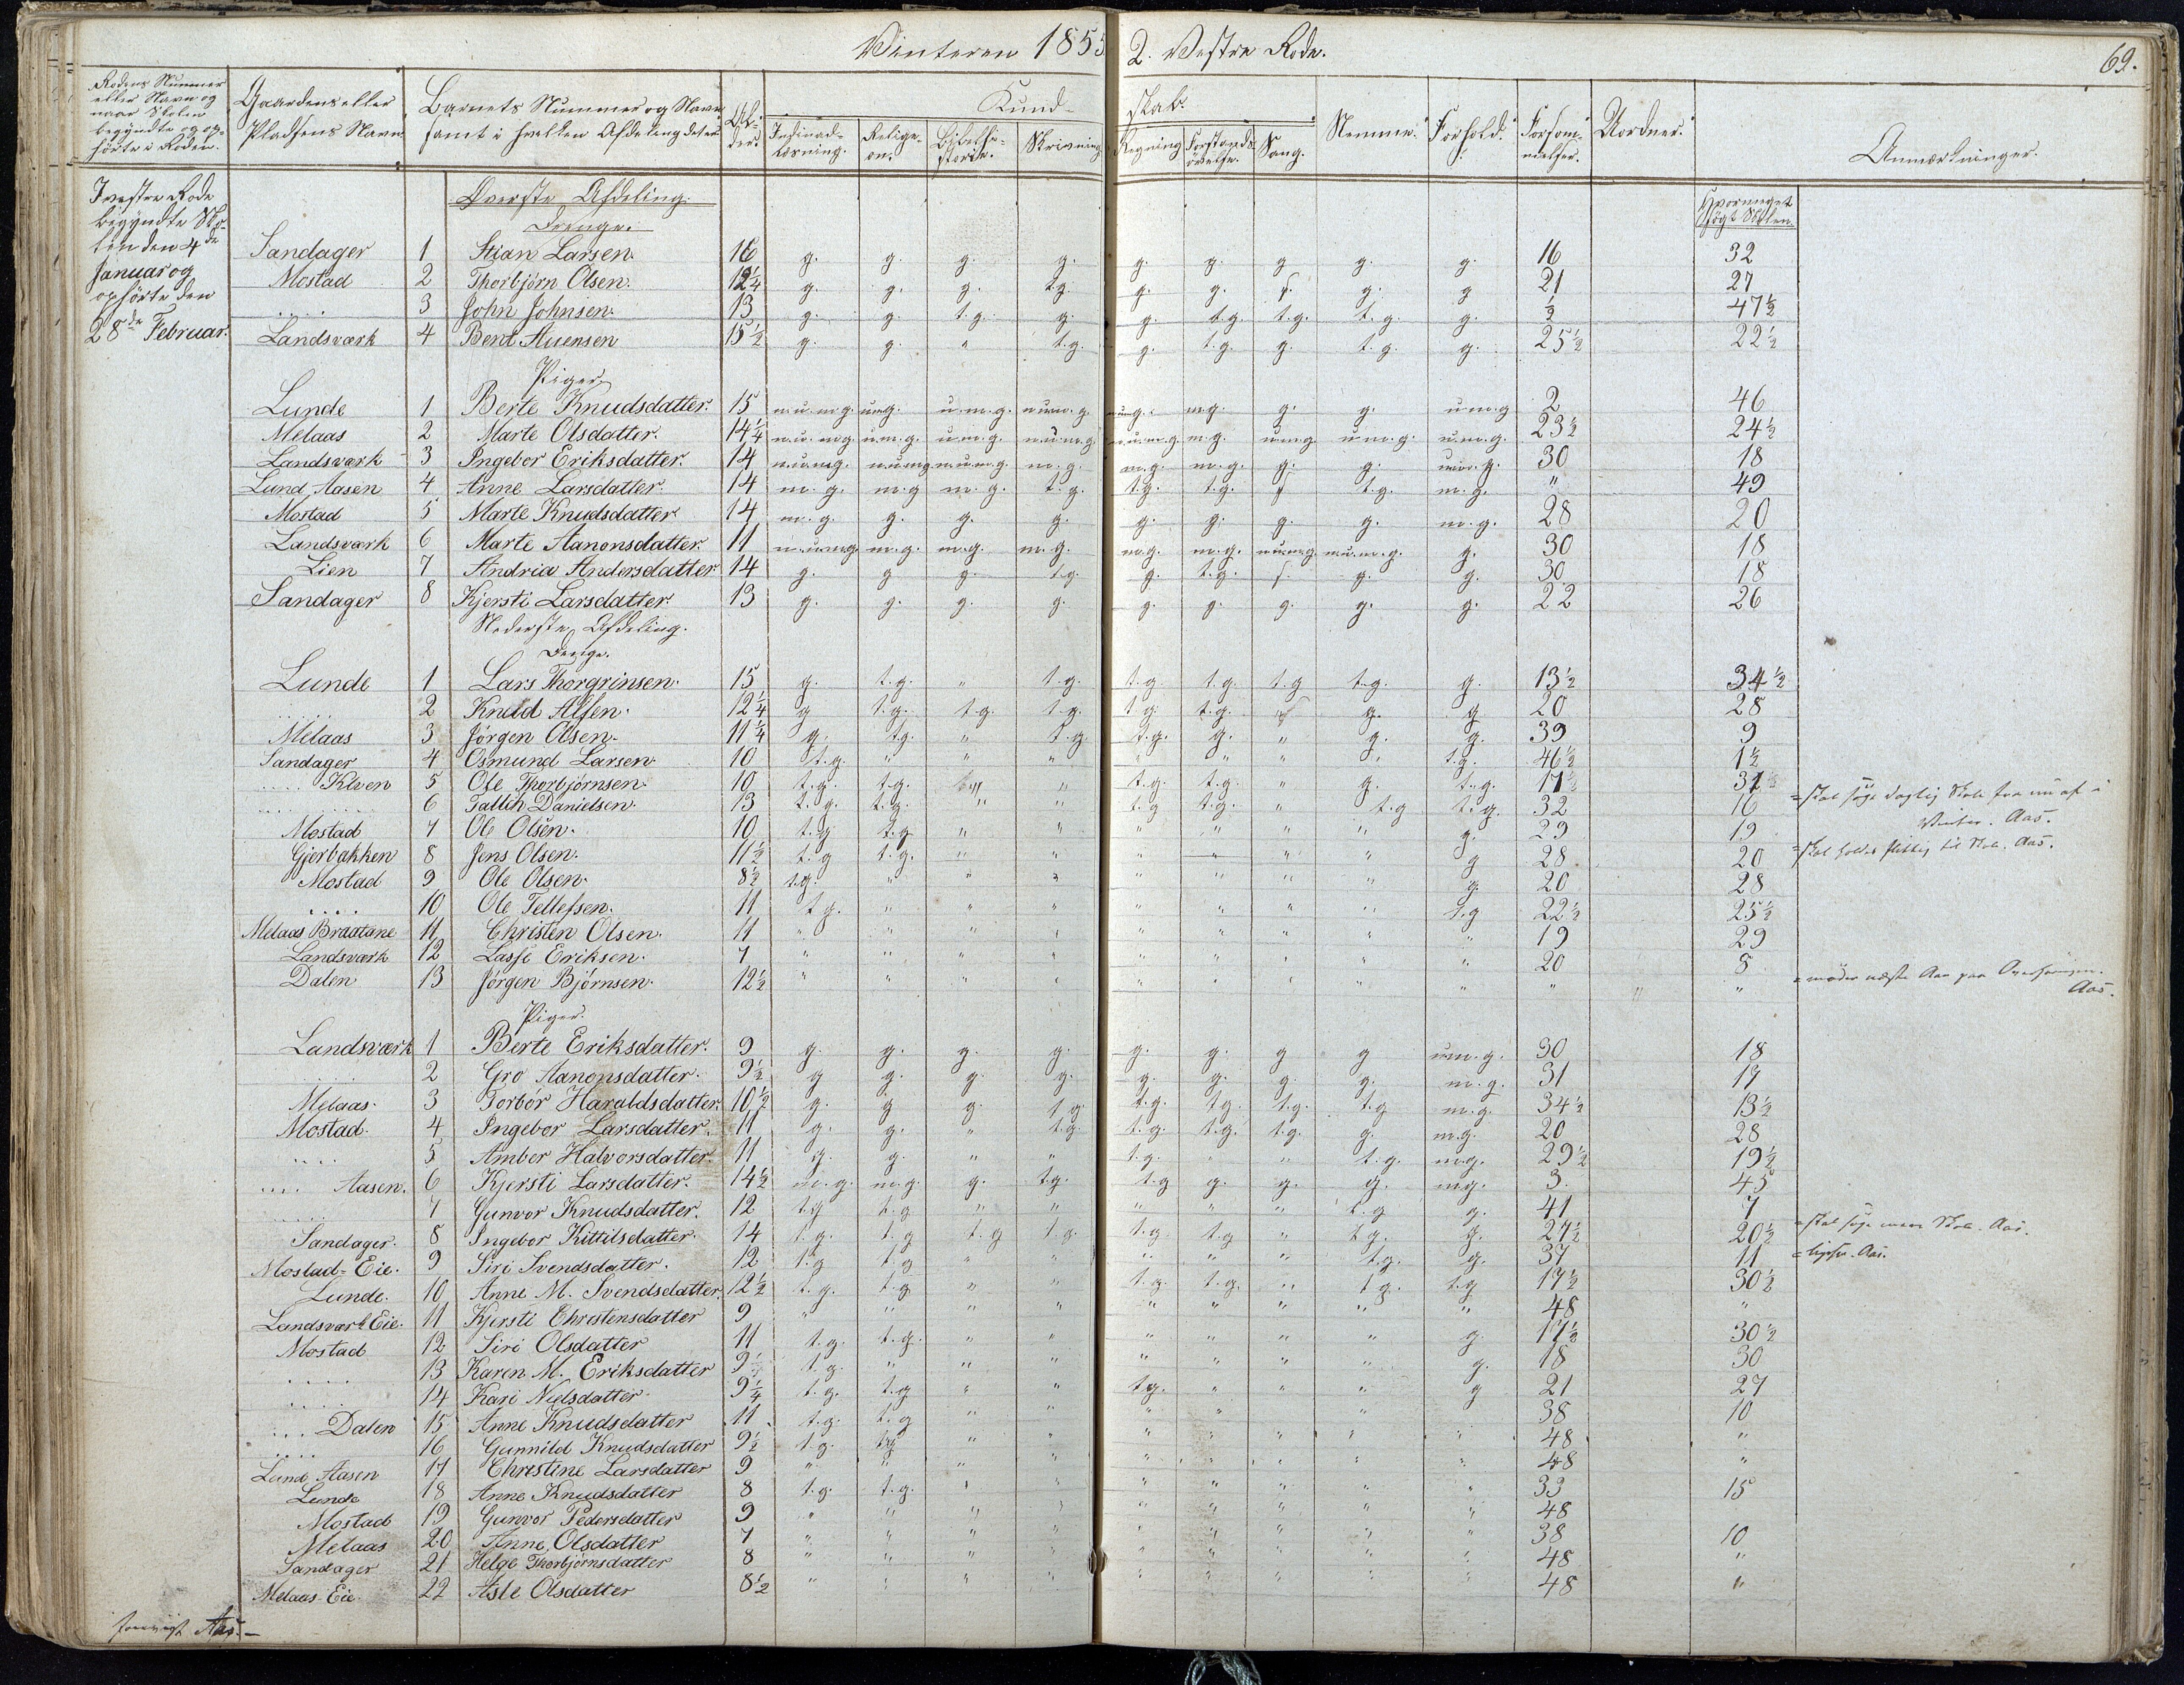 Vinteren 1855 2. Vestre Rode. 69.
Rodens Nummer eller Navn og naar Skolen begyndte og ophörte i Roden. Gaardens eller Pladsens Navn. Barnets Nummer og Navn samt i hvilken Afdeling det er Alder. Kundskab. Nemme. Forhold. Forsömmelser. Uordner. Anmærkninger.
Indenadslæsning. Religion. Bibelhistorie. Skrivning Regning Forstands övelse. Sang.
I vestre Rode begyndte Skolen den 4de Januar og ophörte den 28de Februar.
Hvormeget sögt Skolen.
Överste Afdeling.
Drenge.
Sandager 1 Stian Larsen. 16 g. g. g. g. g. g. g g. g. 16 32
Mostad 2 Thorbjörn Olsen. 12 1/4 g. g. g. tg. g. g. g. g 21 27
.... 3 John Johnsen. 13 g. g. t.g. g. g. t.g. t.g. t.g. g. ½ 47½
Landsværk 4 Bent Auensen 15½ g. g. " t.g. g. t.g. g. t.g. g. 25½ 22½
Piger.
Lunde 1 Berte Knudsdatter. 15 n.u.m.g. u.m.g. u.m.g. n.u.m.g. m.g. g. g. u.m.g 2 46
Melaas 2 Marte Olsdatter. 14¼ n.u.m.g u.m.g. u.m.g. n.u.m.g n.u.m.g. m.g. u.m.g u.m.g. u.m.g. 23½ 24½
Landsværk 3 Ingebor Eriksdatter. 14 n.u.m.g. n.u.m.g n.u.m.g. m.g. m.g. m.g. g. g. u.m.g. 30 18
Lund Aasen 4 Anne Larsdatter. 14 m.g. m.g m.g. t.g. t.g. t.g. t.g. m.g. " 49
Mostad 5 Marte Knudsdatter 14 m.g. g. g. g. g. g. g. g. m.g. 28 20
Landsværk 6 Marte Aanonsdatter. 11 n.u.m.g m.g. m.g. m.g. m.g. m.g. n.u.m.g n.u.m.g. g. 30 18
Lien 7 Andria Andersdatter. 14 g. g g. t.g. g. t.g. g. g. 30 18
Sandager 8 Kjersti Larsdatter. 13 g. g. g. g. g. g. g. g. g. 22 26
Nederste Afdeling.
Drenge.
Lunde 1 Lars Thorgrinsen. 15 g. t.g. " t.g. t.g. t.g. t.g t.g. g. 13½ 34½
.... 2 Knud Alfsen. 12¼ g t.g. t.g. t.g. t.g. t.g. g. g 20 28
Melaas 3 Jörgen Olsen. 11¼ g. t.g. " t.g. t.g. g. " g. g. 39 9
Sandager 4 Osmund Larsen. 10 t.g. " " " " " " " t.g. 46½ 1½
.... Kleven 5 Ole Thorbjörnsen. 10 t.g. t.g. " t.g. t.g. " g. t.g. 17½ 31
.... 6 Danielsen. 13 t.g. t.g. " " t.g t.g. " t.g t.g. 32 16 = skal söge daglig Skole fra nu af i Vinter. Aas.
Mostad 7 Ole Olsen. 10 t.g t.g " " " " " " g. 29 19
Gjerbakken 8 Jens Olsen. 11½ t.g t.g. " " " " " " g 28 20 = skal holdes flittig til Skole. Aas.
Mostad 9 Ole Olsen. 8½ t.g. " " " " " " " g. 20 28
.... 10 Ole Tellefsen. 11 t.g. " " " " " " " t.g 22½ 25½
Melaas Braatane 11 Christen Olsen. 11 " " " " " " " " " 19 29
Landsværk 12 Lasse Eriksen. 7 " " " " " " " " " 20 8
Dalen 13 Jörgen Björnsen. 12½ " " " " " " " " " " " " = möder næste Aar paa Aas.
Piger.
Landsværk 1 Berte Eriksdatter. 9 g. g. g. g. g. g. g g u.m.g. 30 18
.... 2 Gro Aanonsdatter. 9½ g g. g. g. g. g. g. g. m.g. 31 17
Melaas. 3 Torbör Haraldsdatter. 10½ g. g g. t.g. t.g. t.g. t.g. t.g m.g. 34½ 13½
Mostad. 4 Ingebor Larsdatter. 11 g. g. " t.g. t.g. t.g. t.g. g. m.g. 20 28
.... 5 Amber Halvorsdatter. 11 g. g. " " t.g. " " t.g. m.g. 29½ 19½
.... Aasen. 6 Kjersti Larsdatter. 14½ m.g. m.g. g. t.g. t.g g. g. g. m.g. 3. 45
.... 7 Gunvor Knudsdatter. 12 t.g t.g " " " " " t.g g. 41 7
Sandager. 8 Ingebor Kittilsdatter. 14 t.g. t.g t.g t.g. t.g. t.g " t.g. g. 27½ 20½ = skal söge mere Skole. Aas.
Mostad-Eie. 9 Siri Svendsdatter. 12 t.g t.g " " " " " t.g. g. 37 11 = ligesaa. Aas.
Lunde. 10 Anne M. Svendsdatter. 12½ t.g. t.g " " t.g. t.g. " t.g. t.g 17½ 30½
Landsværk Eie. 11 Kjersti Christensdatter 9 " " " " " " " " " 48 "
Mostad 12 Siri Olsdatter 11 t.g. t.g. " " " " " " g. 17½ 30½
.... 13 Karen M. Eriksdatter 9 t.g. " " " " " " " g. 18 30
.... 14 Kari Nielsdatter. 9¼ t.g. t.g " " t.g. " " " g 21 27
.... Dalen 15 Anne Knudsdatter 11 t.g. t.g " " " " " 38 10
.... 16 Gunnild Knudsdatter 9½ t.g. t.g " " " " " " " 48 "
Lund Aasen 17 Christine Larsdatter 9 " " " " " " " " " 48 "
Lunde 18 Anne Knudsdatter 8 t.g. t.g. " " " " " " " 33 15
Mostad 19 Gunvor Pedersdatter 9 " " " " " " " " " 48
Melaas 20 Anne Olsdatter 7 " " " " " " " " " 38 10
Sandager 21 Helge Thorbjörnsdatter 8 " " " " " " " " " 48 "
Melaas Eie. 22 Asle Olsdatter 8½ " " " " " " " " " 48 "
forevist Aas.